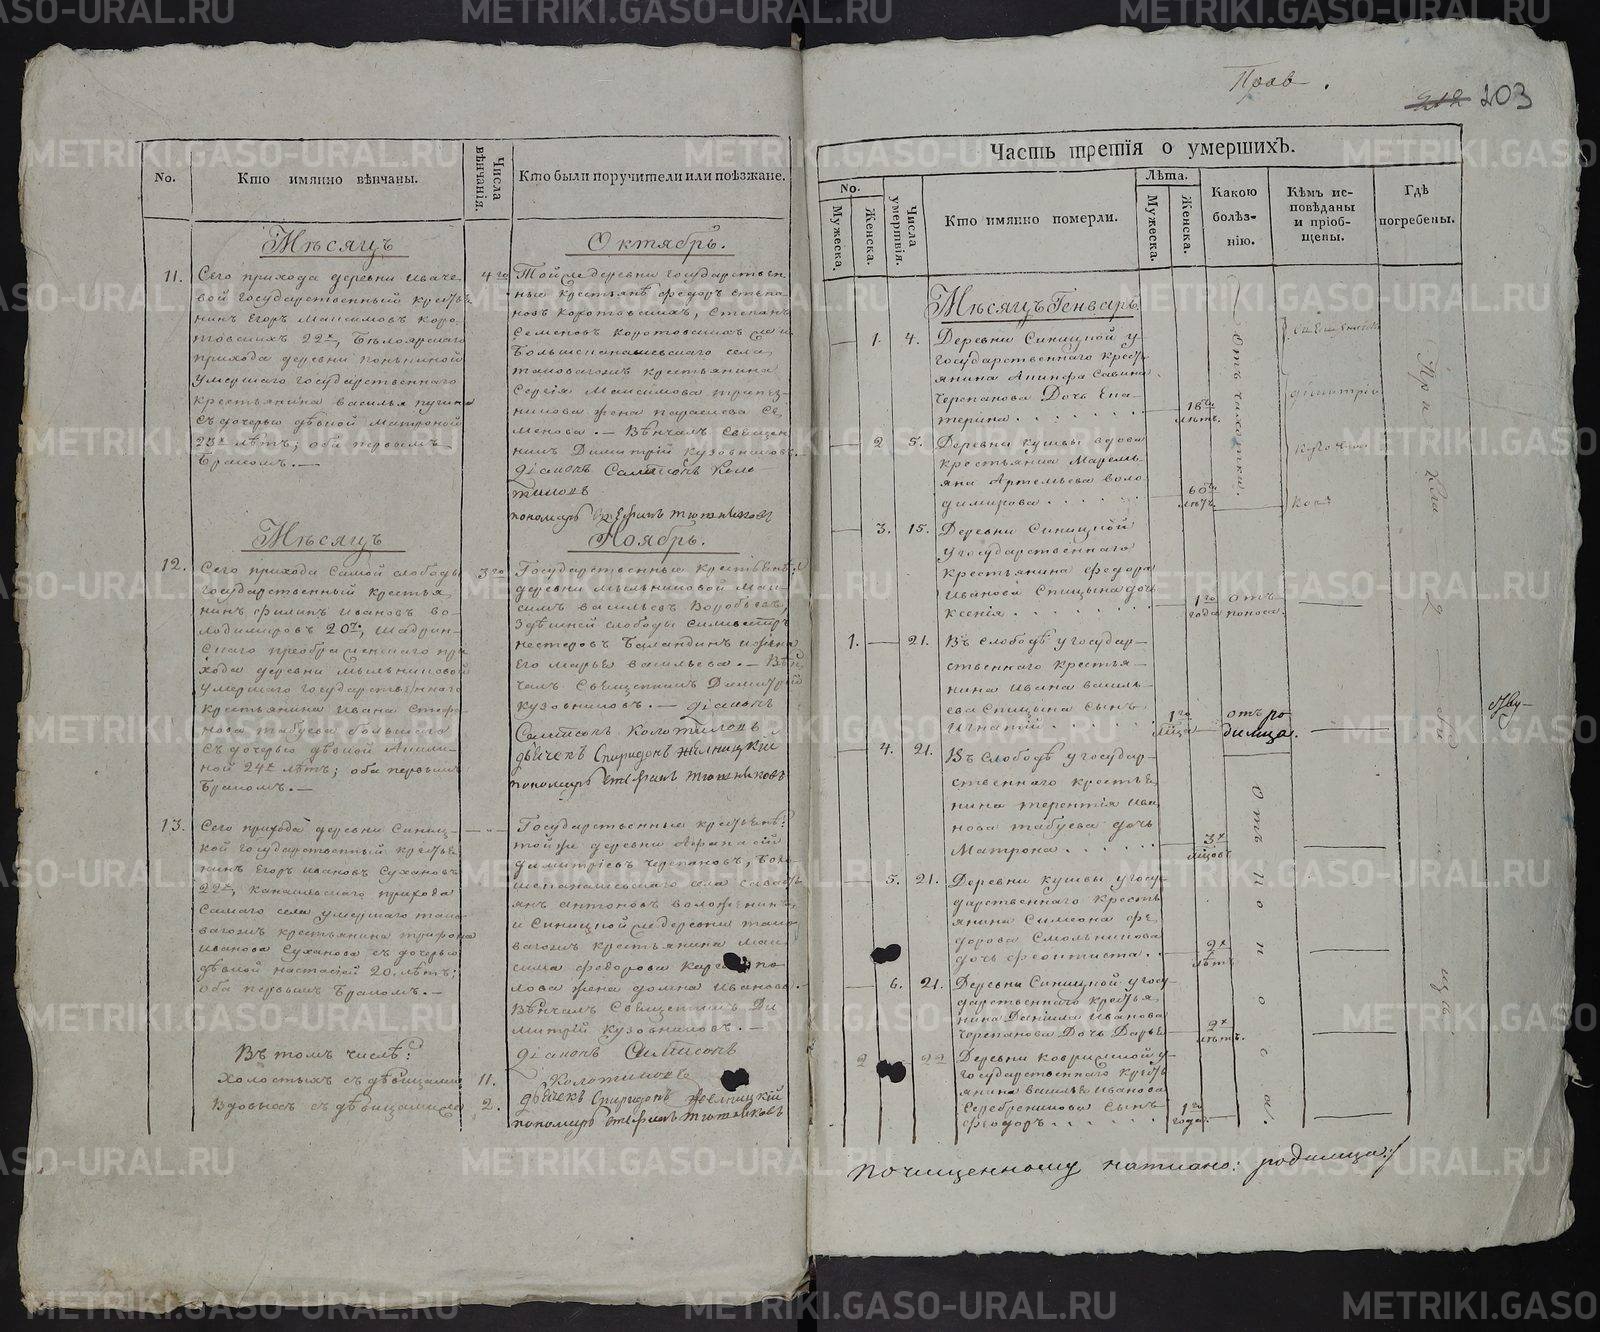 Прав.
212 203
No.
Кто имянно вѣнчаны.
Числа вѣнчанія.
Кто были поручители или поѣзжане.
Мѣсяцъ
Октябрь.
11.
Сего прихода деревни Иваче-
вой государственный кресть-
нинъ Егоръ Максимовъ Коро-
товскихъ 22х, Бѣлоярскаго
прихода деревни
умершаго государственнаго
крестьянина Василья
съ дочерью дѣвкой Матроной
лѣтъ; оба первымъ
бракомъ. —
4го
Той же деревни государствен
ные крестьяне Федоръ Степа
новъ Коротовскихъ, Степанъ
Семеновъ Коротовскихъ же и
Большеканашевскаго села
таковагожъ крестьянина
Сергія Максимова
жена Параскева Се,
менова. — Вѣнчалъ Священ
никъ Димитрій Кузовниковъ.
Діаконъ Сампсонъ Коло
тиловъ
пономарь Стефанъ Тютюниковъ
Мѣсяцъ
Ноябрь.
12.
Сего прихода самой слободы
государственный крестья,
нинъ Филипъ Ивановъ Во-
лодимировъ 20ти, Шадрин-
скаго преображенскаго при
хода деревни Мыльниковой
умершаго государственнаго
крестьянина Ивана Стефа
нова Табуева большаго
съ дочерью дѣвкой Акили-
ной 24х лѣтъ; оба первымъ
бракомъ. —
3го
Государственные крестьяне:
деревни Мыльниковой Мак
симъ Васильевъ Воробьевъ,
здѣшней слободы Силивестръ
Нестеровъ Баландинъ и жена
его Марья Васильева. — Вѣн
чалъ Священникъ Димитрій
Кузовниковъ. — Діаконъ
Сампсонъ Колотиловъ
дьячекъ Спиридонъ Желницкій
пономарь Стефанъ Тютюниковъ
13.
Сего прихода деревни Синиц-
кой государственный крестья
нинъ Егоръ Ивановъ Сухановъ
22х, Канашевскаго прихода
самаго села умершаго тако
вагожъ крестьянина Трифона
Иванова Суханова съ дочерью
дѣвкой Настасіей 20. лѣтъ:
оба первымъ бракомъ. —
Государственные крестьяне:
той же деревни Афанасій
Димитріевъ Черепановъ, Бол
шеканашевскаго села Савать
янъ Антоновъ
и Синицкой же деревни тако
вагожъ крестьянина Мак
сима Федорова Кар
лова жена Домна Иванова.
Вѣнчалъ Священникъ Ди
митрій Кузовниковъ. —
Діаконъ Сампсонъ
Колотиловъ
дьячекъ Спиридонъ Желницкій
пономарь Стефанъ Тютюниковъ
Въ томъ числѣ:
Холостыхъ съ дѣвицами 11.
Вдовыхъ съ дѣвицами же 2.
Часть третія о умершихъ.
No.
Мужеска.
Женска.
Числа умертвія.
Кто имянно померли.
Лѣта.
Мужеска.
Женска.
Какою
болѣз-
нію.
Кѣмъ ис-
повѣданы
и пріоб-
щены.
Гдѣ
погребены.
Мѣсяцъ Генварь
1. 4.
Деревни Синицкой у
государственнаго кресть
янина Акинфа Савина
Черепанова дочь Ека
терина
18ти
лѣтъ.
Отъ чихотки.
Священникомъ
Димитріемъ
На приходскомъ
2 5.
Деревни Кушвы вдова
крестьянка Маремь-
яна Артемьева Воло
димирова
60ти
лѣтъ
3. 15.
Деревни Синицкой
у государственнаго
крестьянина Федора
Иванова Спицына дочь
Ксенія
1го
года
отъ
поноса.
1. 21.
Въ слободѣ у государ-
ственнаго крестья-
нина Ивана Василь-
ева Спицына сынъ
Игнатій
1го
мца
отъ ро
димца.
4. 21.
Въ слободѣ у государ-
ственнаго крестья
нина Терентія Ива,
нова Табуева дочь
Матрона
3х
мцовъ
Отъ поноса.
5. 21.
Деревни Кушвы у госу-
дарственнаго кресть
янина Симеона Фе,
дорова Смольникова
дочь Феоктиста
2х
лѣтъ
6. 21.
Деревни Синицкой у госу-
дарственнаго крестья
нина Даніила Иванова
Черепанова дочь Дарья
2х
лѣтъ.
2 22
Деревни Ковриженой у
государственнаго кресть
янина Василья Иванова
Серебреникова сынъ
Феодоръ
1го
года.
По чищенному написано: родимца:/
METRIKI.GASO-URAL.RU